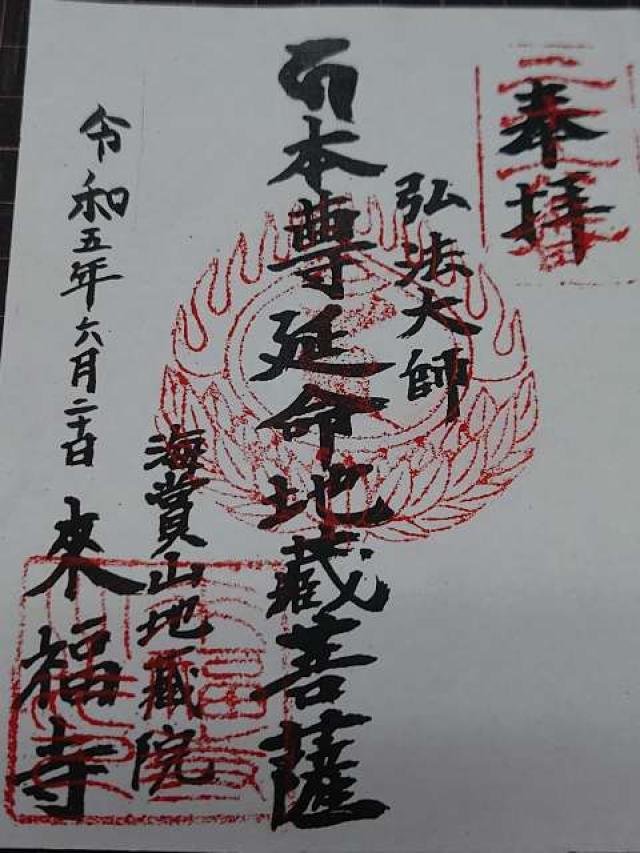 奉拝
弘法大師
本尊延命地蔵菩薩
海賞山地蔵院
令和五年六月二十日
來福寺